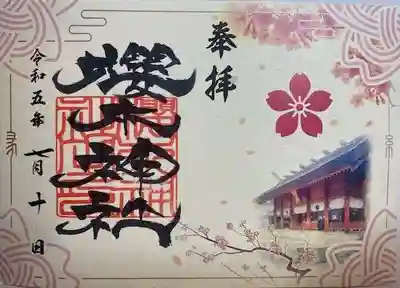 奉拝
櫻木神社
令和五年 七月十日